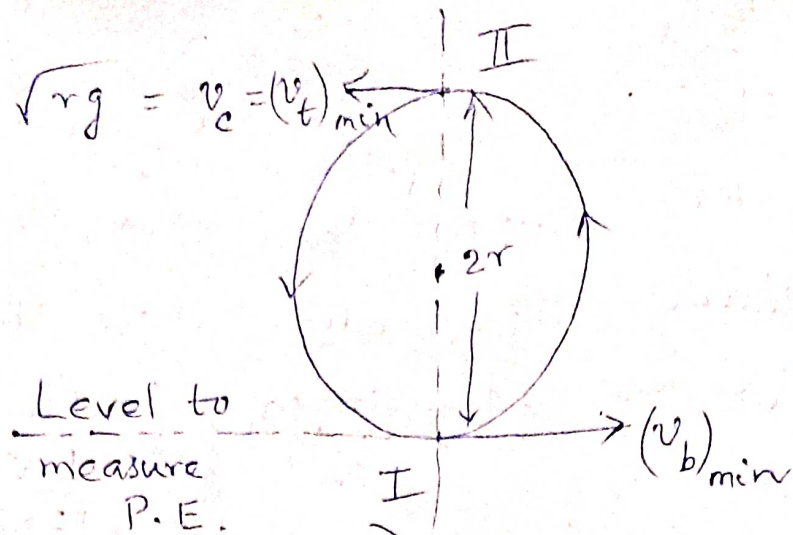 II
√rg = v_c = (v_t)_min
2r
Level to
measure
P.E.
I
(v_b)_min